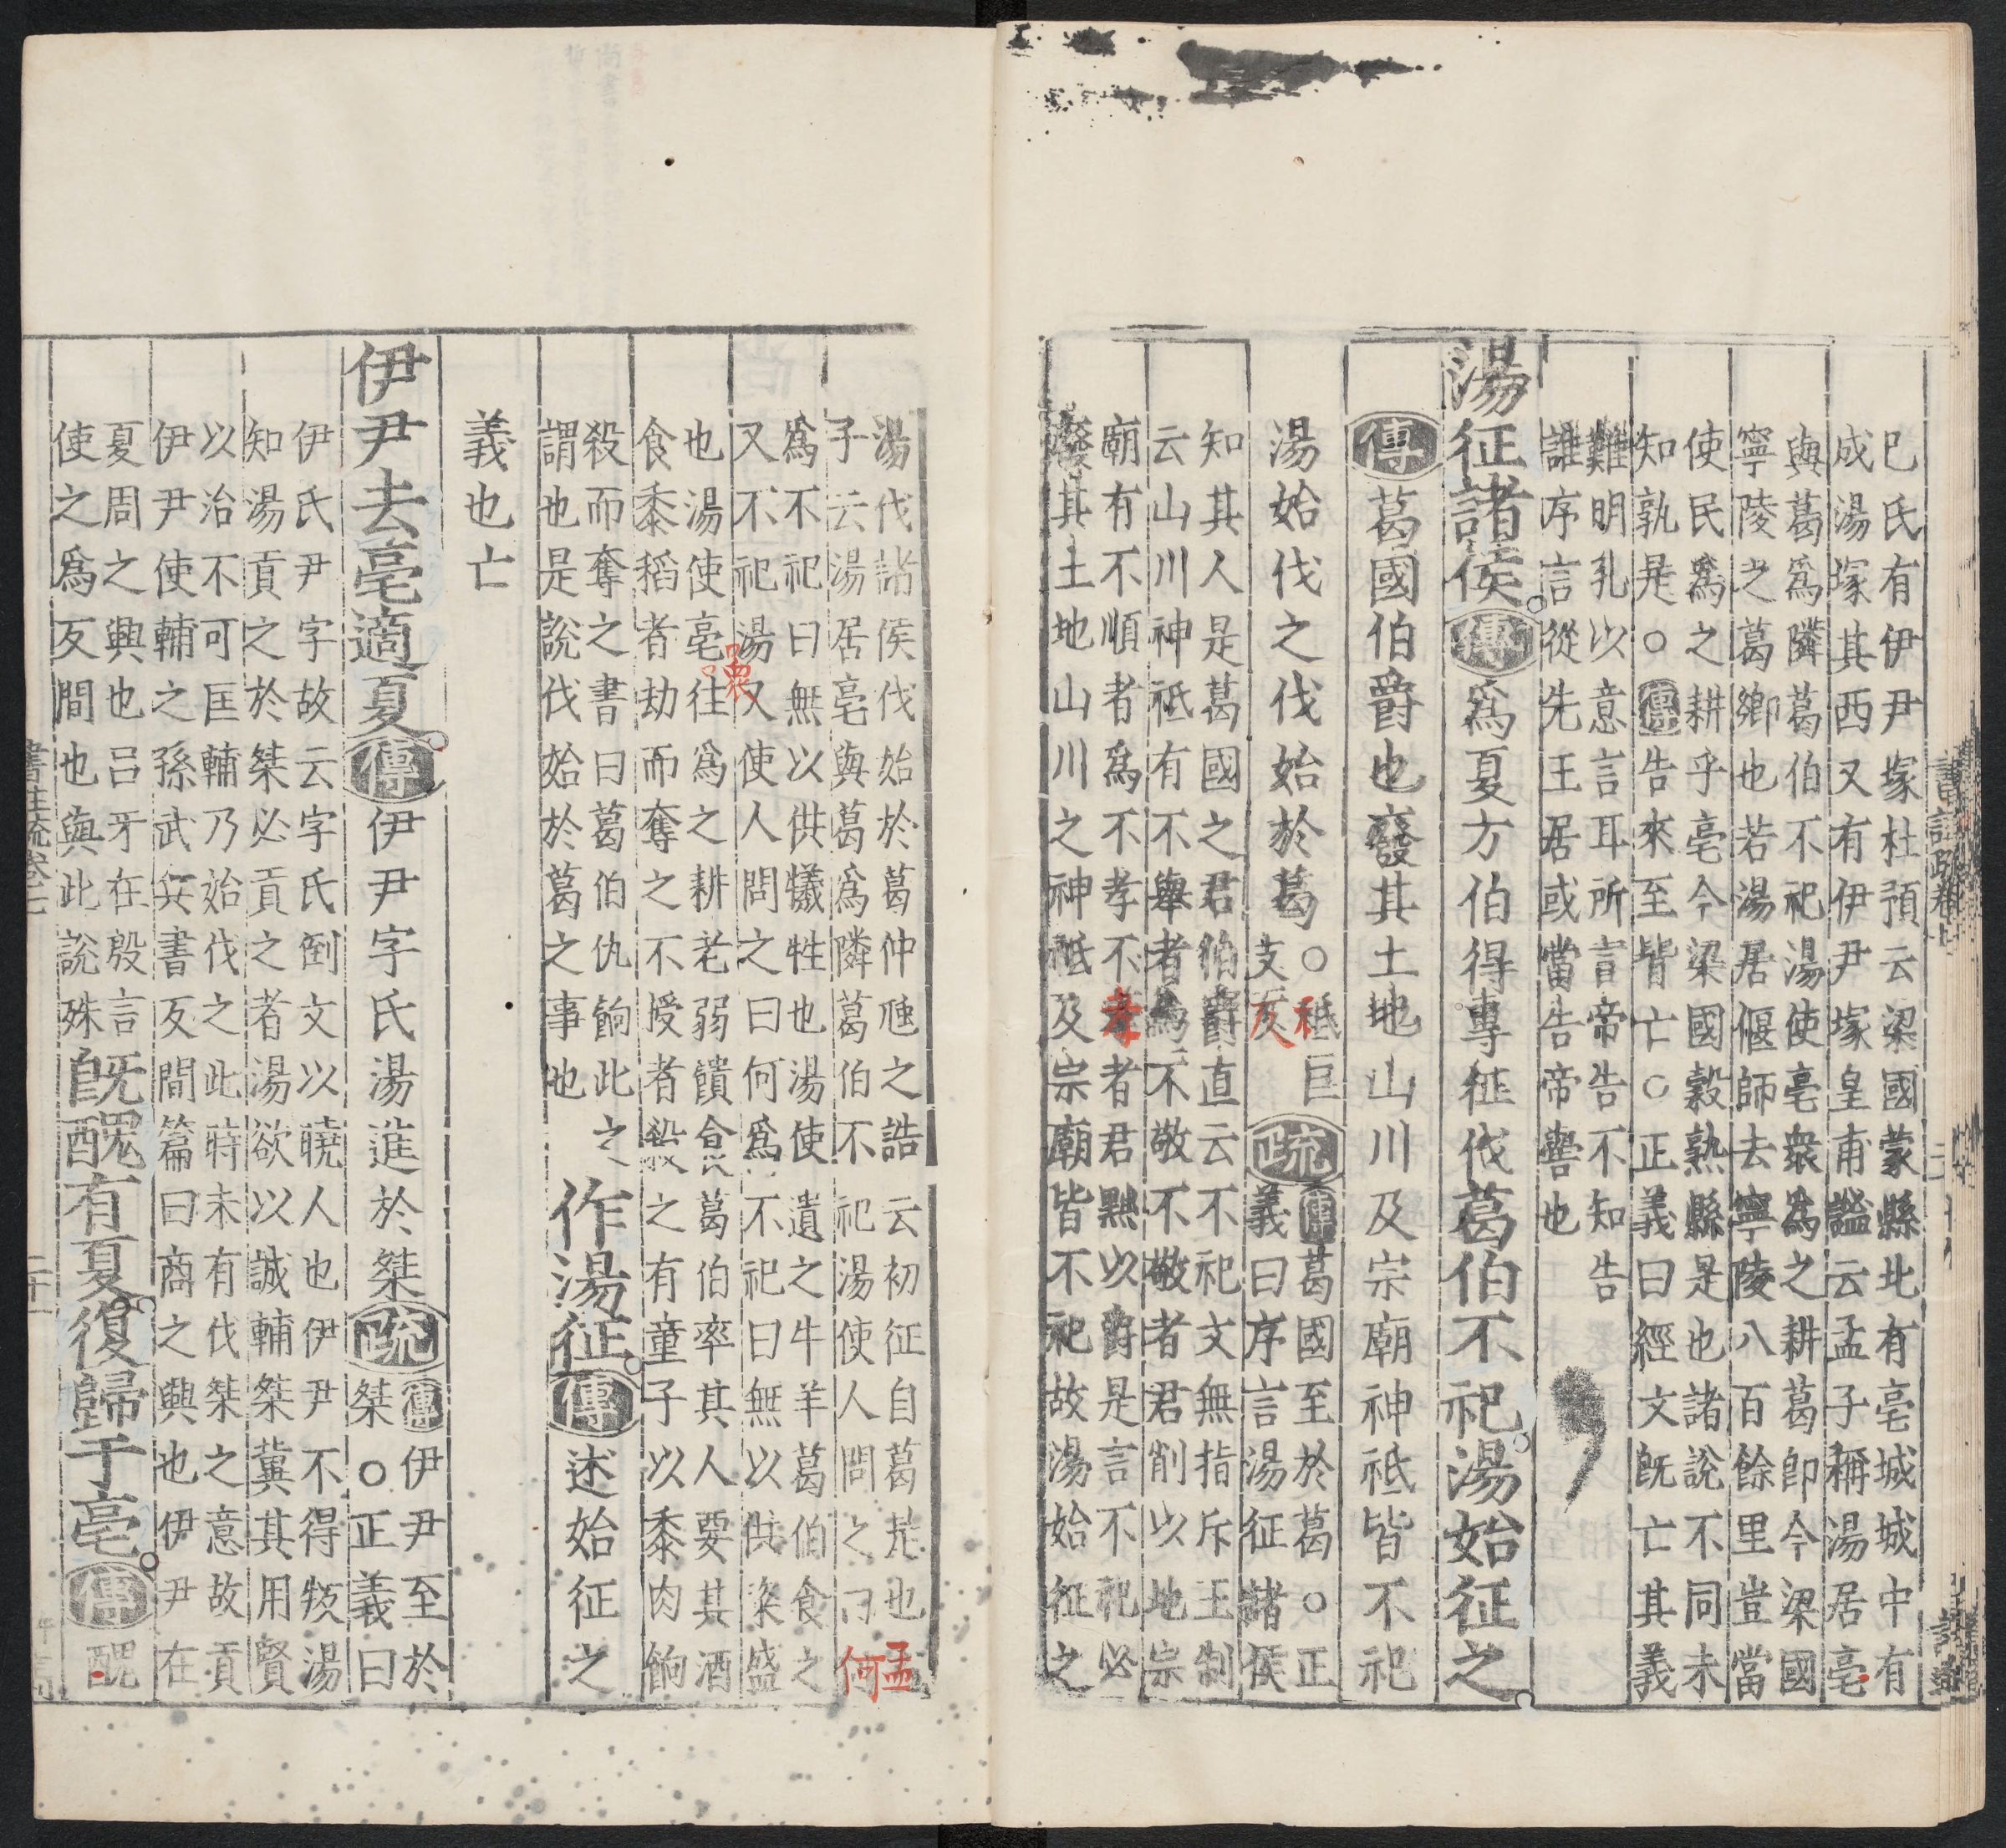 已氏有伊尹塚杜預云梁國蒙縣北有亳城城中有
成湯塚其西又有伊尹塚皇甫謐云孟子稱湯居亳
與葛爲隣葛伯不祀湯使亳衆爲之耕葛即今梁國
寧陵之葛鄉也若湯居偃師去寧陵八百餘里豈當
使民爲之耕乎亳今梁國穀熟縣是也諸說不同未
知孰是○傳告來至皆亡○正義曰經文既亡其義
難明孔以意言耳所言帝告不知告
誰序言從先王居或當告帝嚳也
湯征諸侯傳爲夏方伯得專征伐葛伯不祀湯始征之
傳葛國伯爵也廢其土地山川及宗廟神祇皆不祀
湯始伐之伐始於葛○祇巨
支反
疏傳葛國至於葛○正
義曰序言湯征諸侯
知其人是葛國之君伯爵直云不祀文無指斥王制
云山川神祇有不舉者爲不敬不敬者君削以地宗
廟有不順者爲不孝不孝者君黜以爵是言不祀必
廢其土地山川之神祇及宗廟皆不祀故湯始征之
湯伐諸侯伐始於葛仲虺之誥云初征自葛是也孟
子云湯居亳與葛爲隣葛伯不祀湯使人問之曰何
爲不祀曰無以供犧牲也湯使遺之牛羊葛伯食之
又不祀湯又使人問之曰何爲不祀曰無以供粢盛
也湯使亳衆往爲之耕老弱饋食葛伯率其人要其酒
食黍稻者劫而奪之不授者殺之有童子以黍肉餉
殺而奪之書曰葛伯仇餉此之
謂也是說伐始於葛之事也
作湯征傳述始征之
義也亡
伊尹去亳適夏傳伊尹字氏湯進於桀疏傳伊尹至於
桀○正義曰
伊氏尹字故云字氏倒文以曉人也伊尹不得叛湯
知湯貢之於桀必貢之者湯欲以誠輔桀冀其用賢
以治不可匡輔乃始伐之此時未有伐桀之意故貢
伊尹使輔之孫武兵書反間篇曰商之興也伊尹在
夏周之興也呂牙在殷言
使之爲反間也與此說殊
既醜有夏復歸于亳傳醜
書注疏卷七
二十一